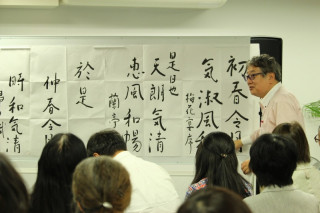 初春令月
氣淑風和
梅花
序
是日也
天朗氣清
惠風和暢
蘭亭
於是
仲春令月
時和氣清